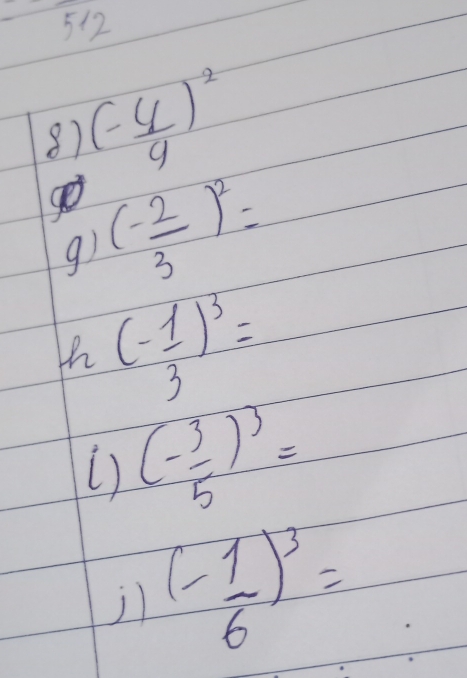 512
8) (-4/9)²
g) (-2/3)² =
h (-1/3)³ =
i) (-3/5)³ =
j) (-1/6)³ =